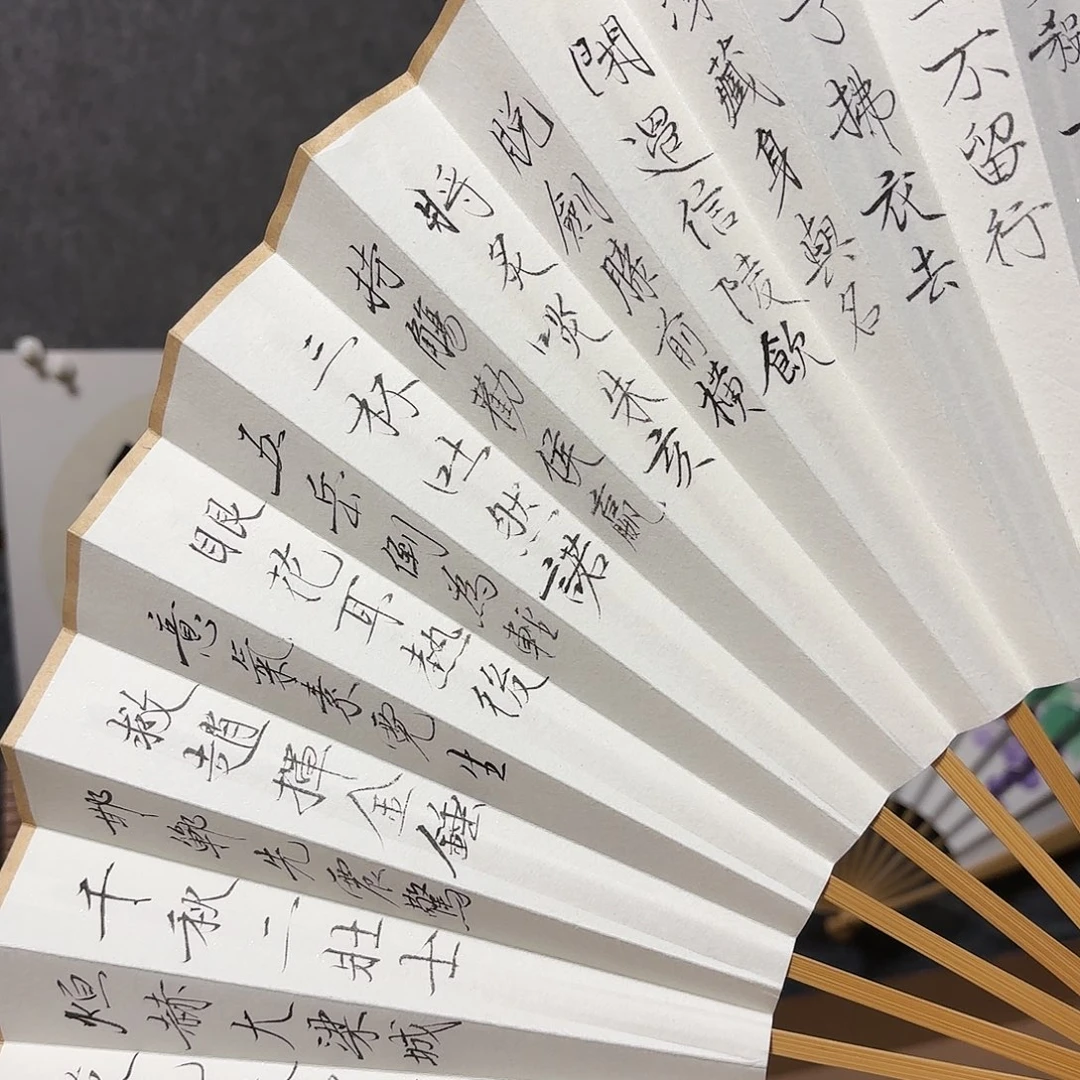 殺一
不留行
了拂衣去
深藏身與名
閒過信陵飲
脫劍膝前橫
將炙啖朱亥
持觴勸侯嬴
三杯吐然諾
五岳倒為輕
眼花耳熱後
意氣素霓生
救趙揮金錘
邯鄲先震驚
千秋二壯士
烜赫大梁城